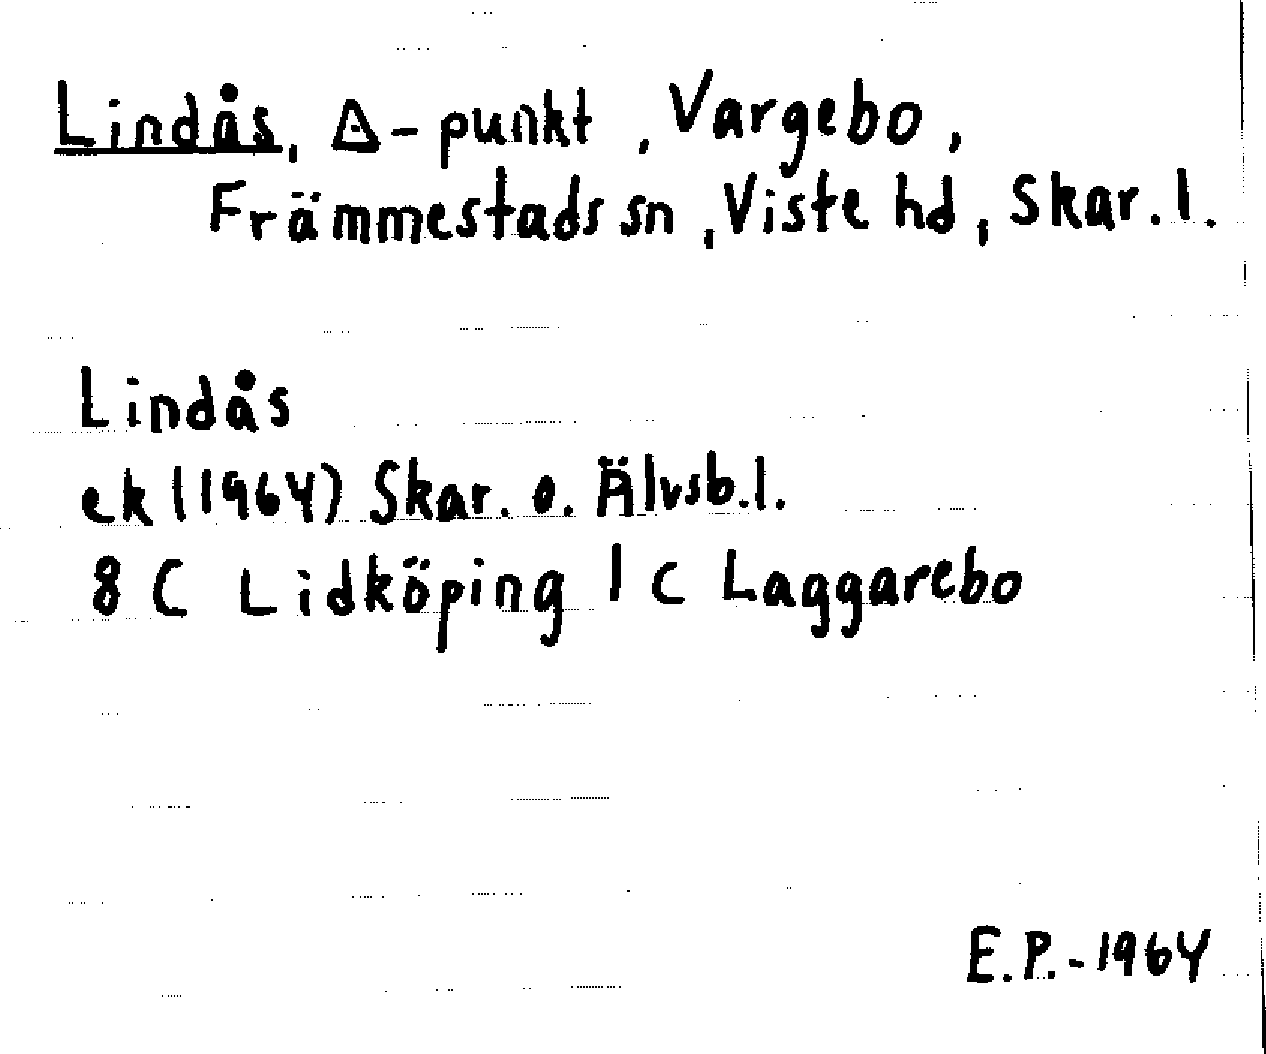 Lindås, Δ-punkt, Vargebo,
Främmestads sn, Viste hd, Skar. l.
Lindås
ek (1964) Skar. o. Älvsb. l.
8 C Lidköping 1 c Laggarebo
E.P.-1964